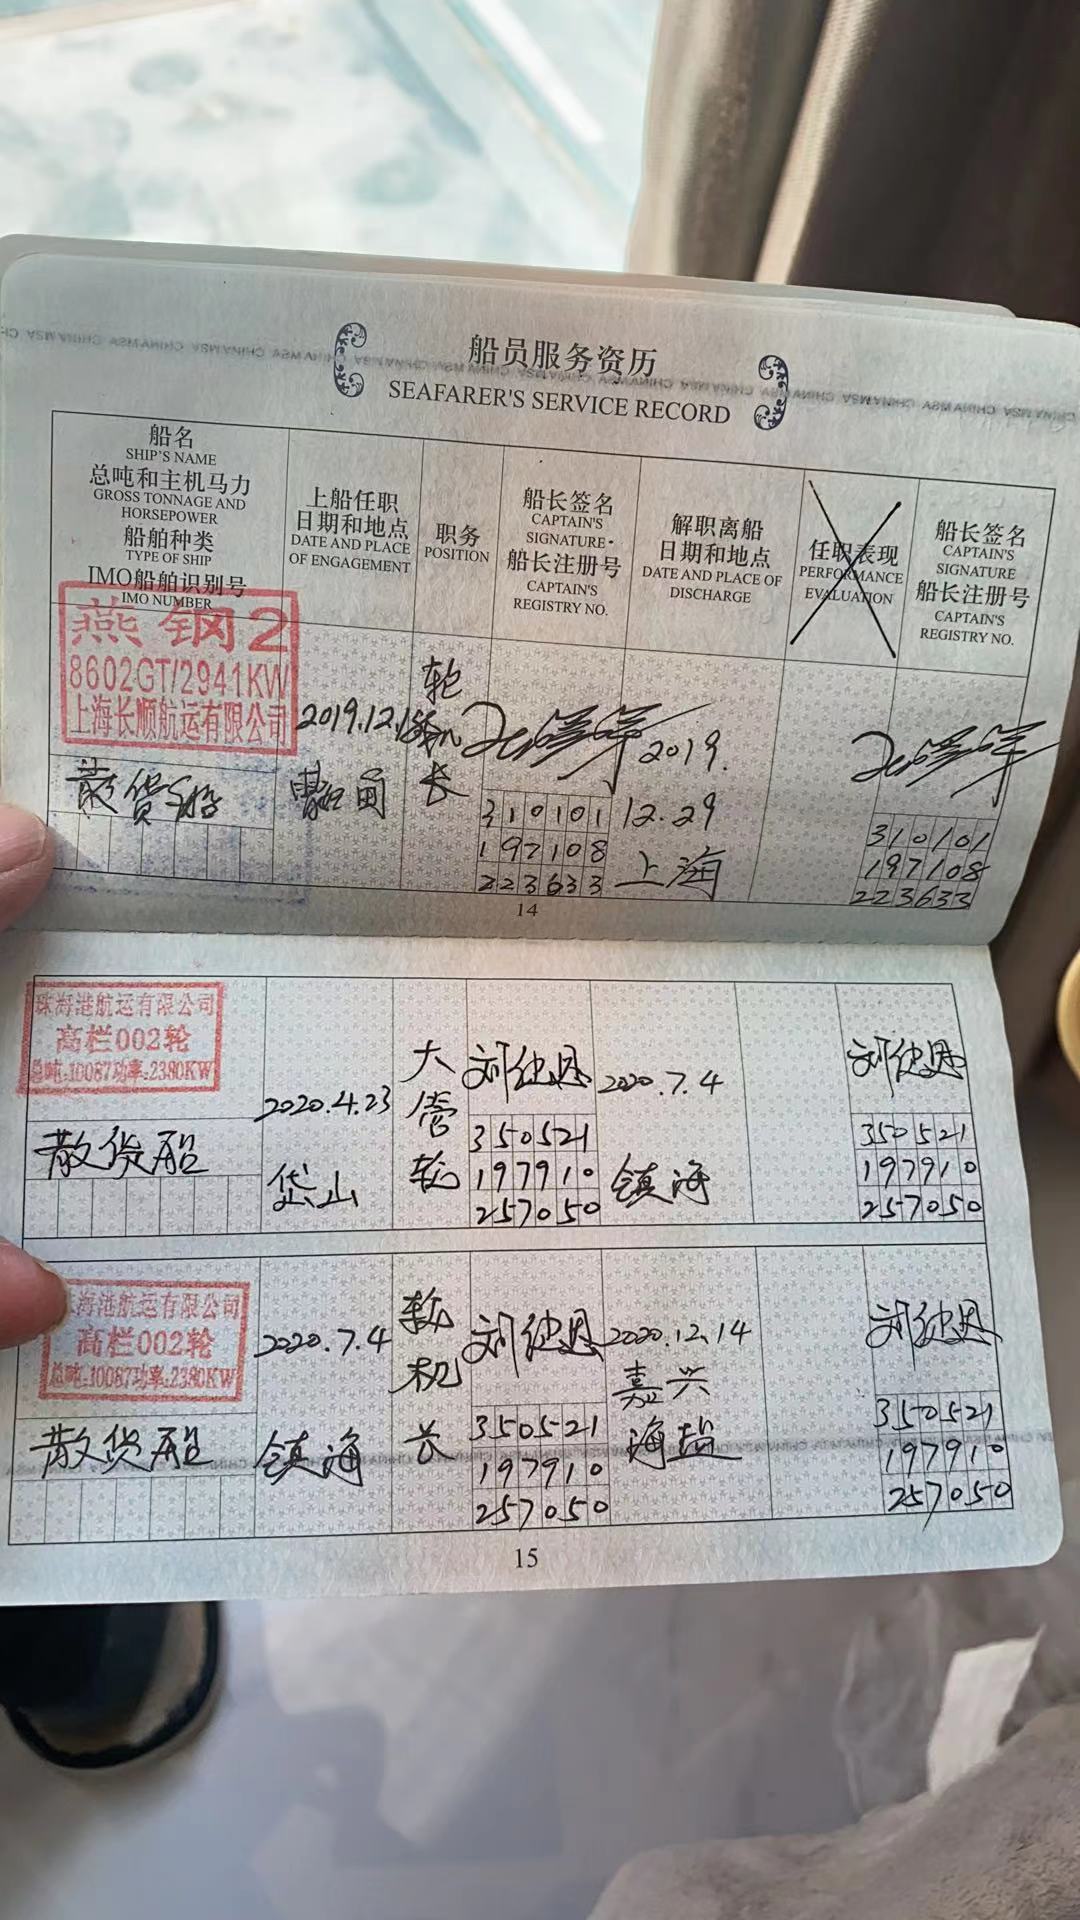 船员服务资历
SEAFARER'S SERVICE RECORD
船名
SHIP'S NAME
总吨和主机马力
GROSS TONNAGE AND
HORSEPOWER
船舶种类
TYPE OF SHIP
IMO船舶识别号
IMO NUMBER
上船任职
日期和地点
DATE AND PLACE
OF ENGAGEMENT
职务
POSITION
船长签名
CAPTAIN'S
SIGNATURE
船长注册号
CAPTAIN'S
REGISTRY NO.
解职离船
日期和地点
DATE AND PLACE OF
DISCHARGE
任职表现
PERFORMANCE
EVALUATION
船长签名
CAPTAIN'S
SIGNATURE
船长注册号
CAPTAIN'S
REGISTRY NO.
燕钢2
8602GT/2941KW
上海长顺航运有限公司
散货船
2019.12.18
轮机长
310101
197108
223633
2019.
12.29
上海
310101
197108
223633
14
珠海港航运有限公司
高栏002轮
总吨:10087功率:2380KW
散货船
2020.4.23
岱山
大管轮
350521
197910
257050
2020.7.4
镇海
350521
197910
257050
海港航运有限公司
高栏002轮
总吨:10087功率:2380KW
散货船
2020.7.4
镇海
轮机长
350521
197910
257050
2020.12.14
嘉兴
海盐
350521
197910
257050
15